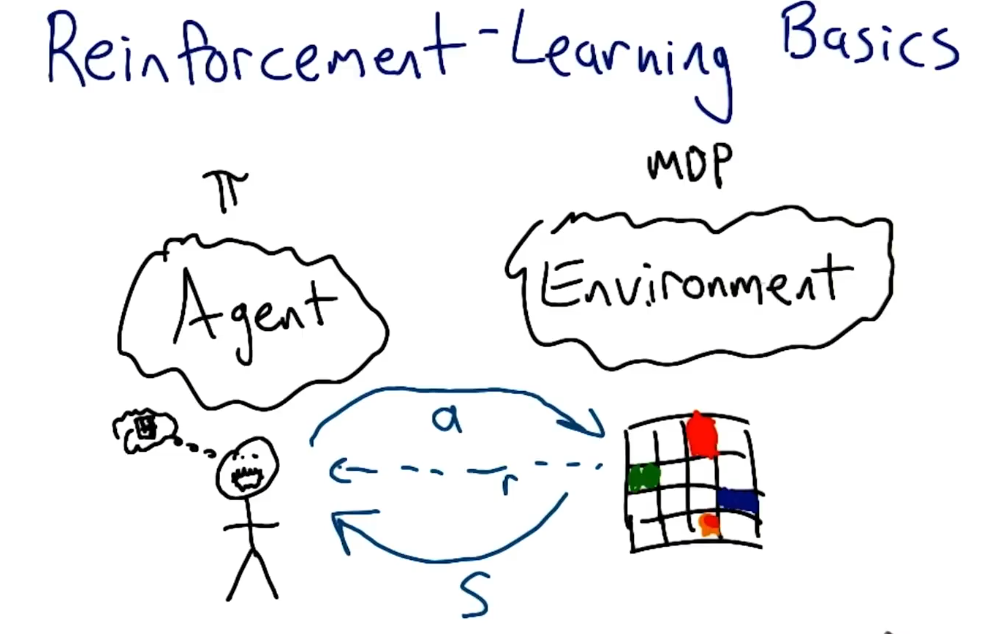 Reinforcement-Learning Basics
π
MDP
Agent
Environment
a
r
S